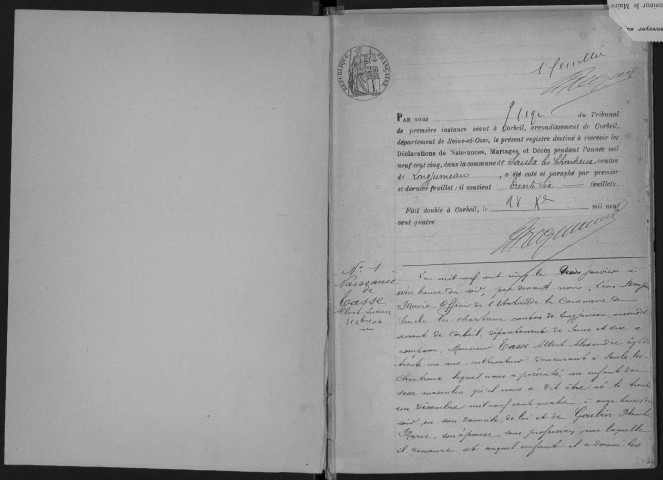 nsieur le Maire
RÉPUBLIQUE FRANÇAISE
1er feuillet
PAR NOUS Juge du Tribunal
de première instance séant à Corbeil, arrondissement de Corbeil,
département de Seine-et-Oise, le présent registre destiné à recevoir les
Déclarations de Naissances, Mariages, et Décès pendant l'année mil
neuf cent cinq, dans la commune de Saulx les Chartreux, canton
de Longjumeau, a été coté et paraphé par premier
et dernier feuillet; il contient trente six feuillets.
Fait double à Corbeil, le 18 Xbre mil neuf
cent quatre.
N° 1
Naissance
de
Tasse
Albert Lucien
31 Xbre 04
L'an mil neuf cent cinq le trois janvier à
heure du soir, par devant nous, Léon
Maire Officier de l'État civil de la Commune de
Saulx les chartreux canton de Longjumeau, arrondis-
sement de Corbeil, département de Seine et Oise a
comparu, Monsieur Tasse Albert Alexandre âgé de
trente un ans, cultivateur demeurant à Saulx les
Chartreux lequel nous a présenté un enfant du
sexe masculin qu'il nous a dit être né le trente
un décembre mil neuf cent quatre à onze heures du
soir en son domicile, de lui et de Goulin Blanche
Marie, son épouse, sans profession, avec laquelle
il demeure et auquel enfant il a donné les